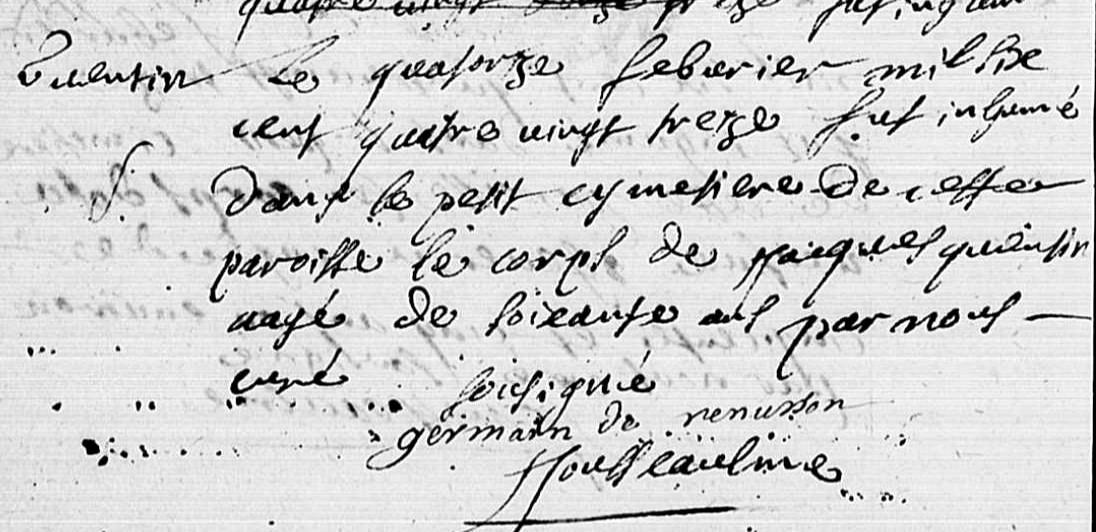 quatre vingt treze fut inhumé
Quentin Le quatorze febvrier mil six
cent quatre vingt treze fut inhumé
S. dans le petit cymetiere de cette
paroisse le corps de Jacques quentin
aagé de soixante ans par nous
curé soussigné
germain de renusson